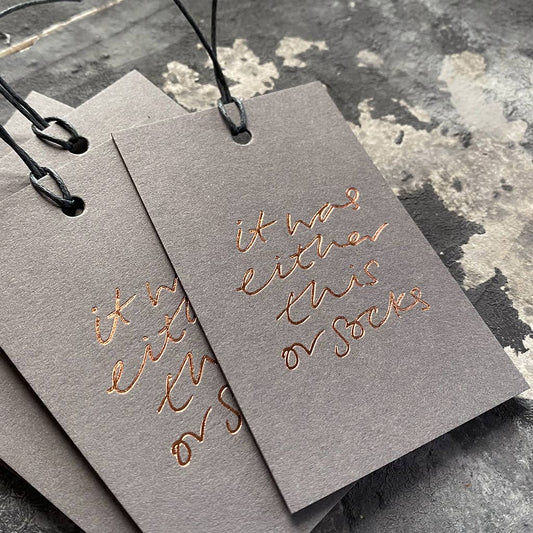 it was
either
this
or socks
it was
eith
th
or s